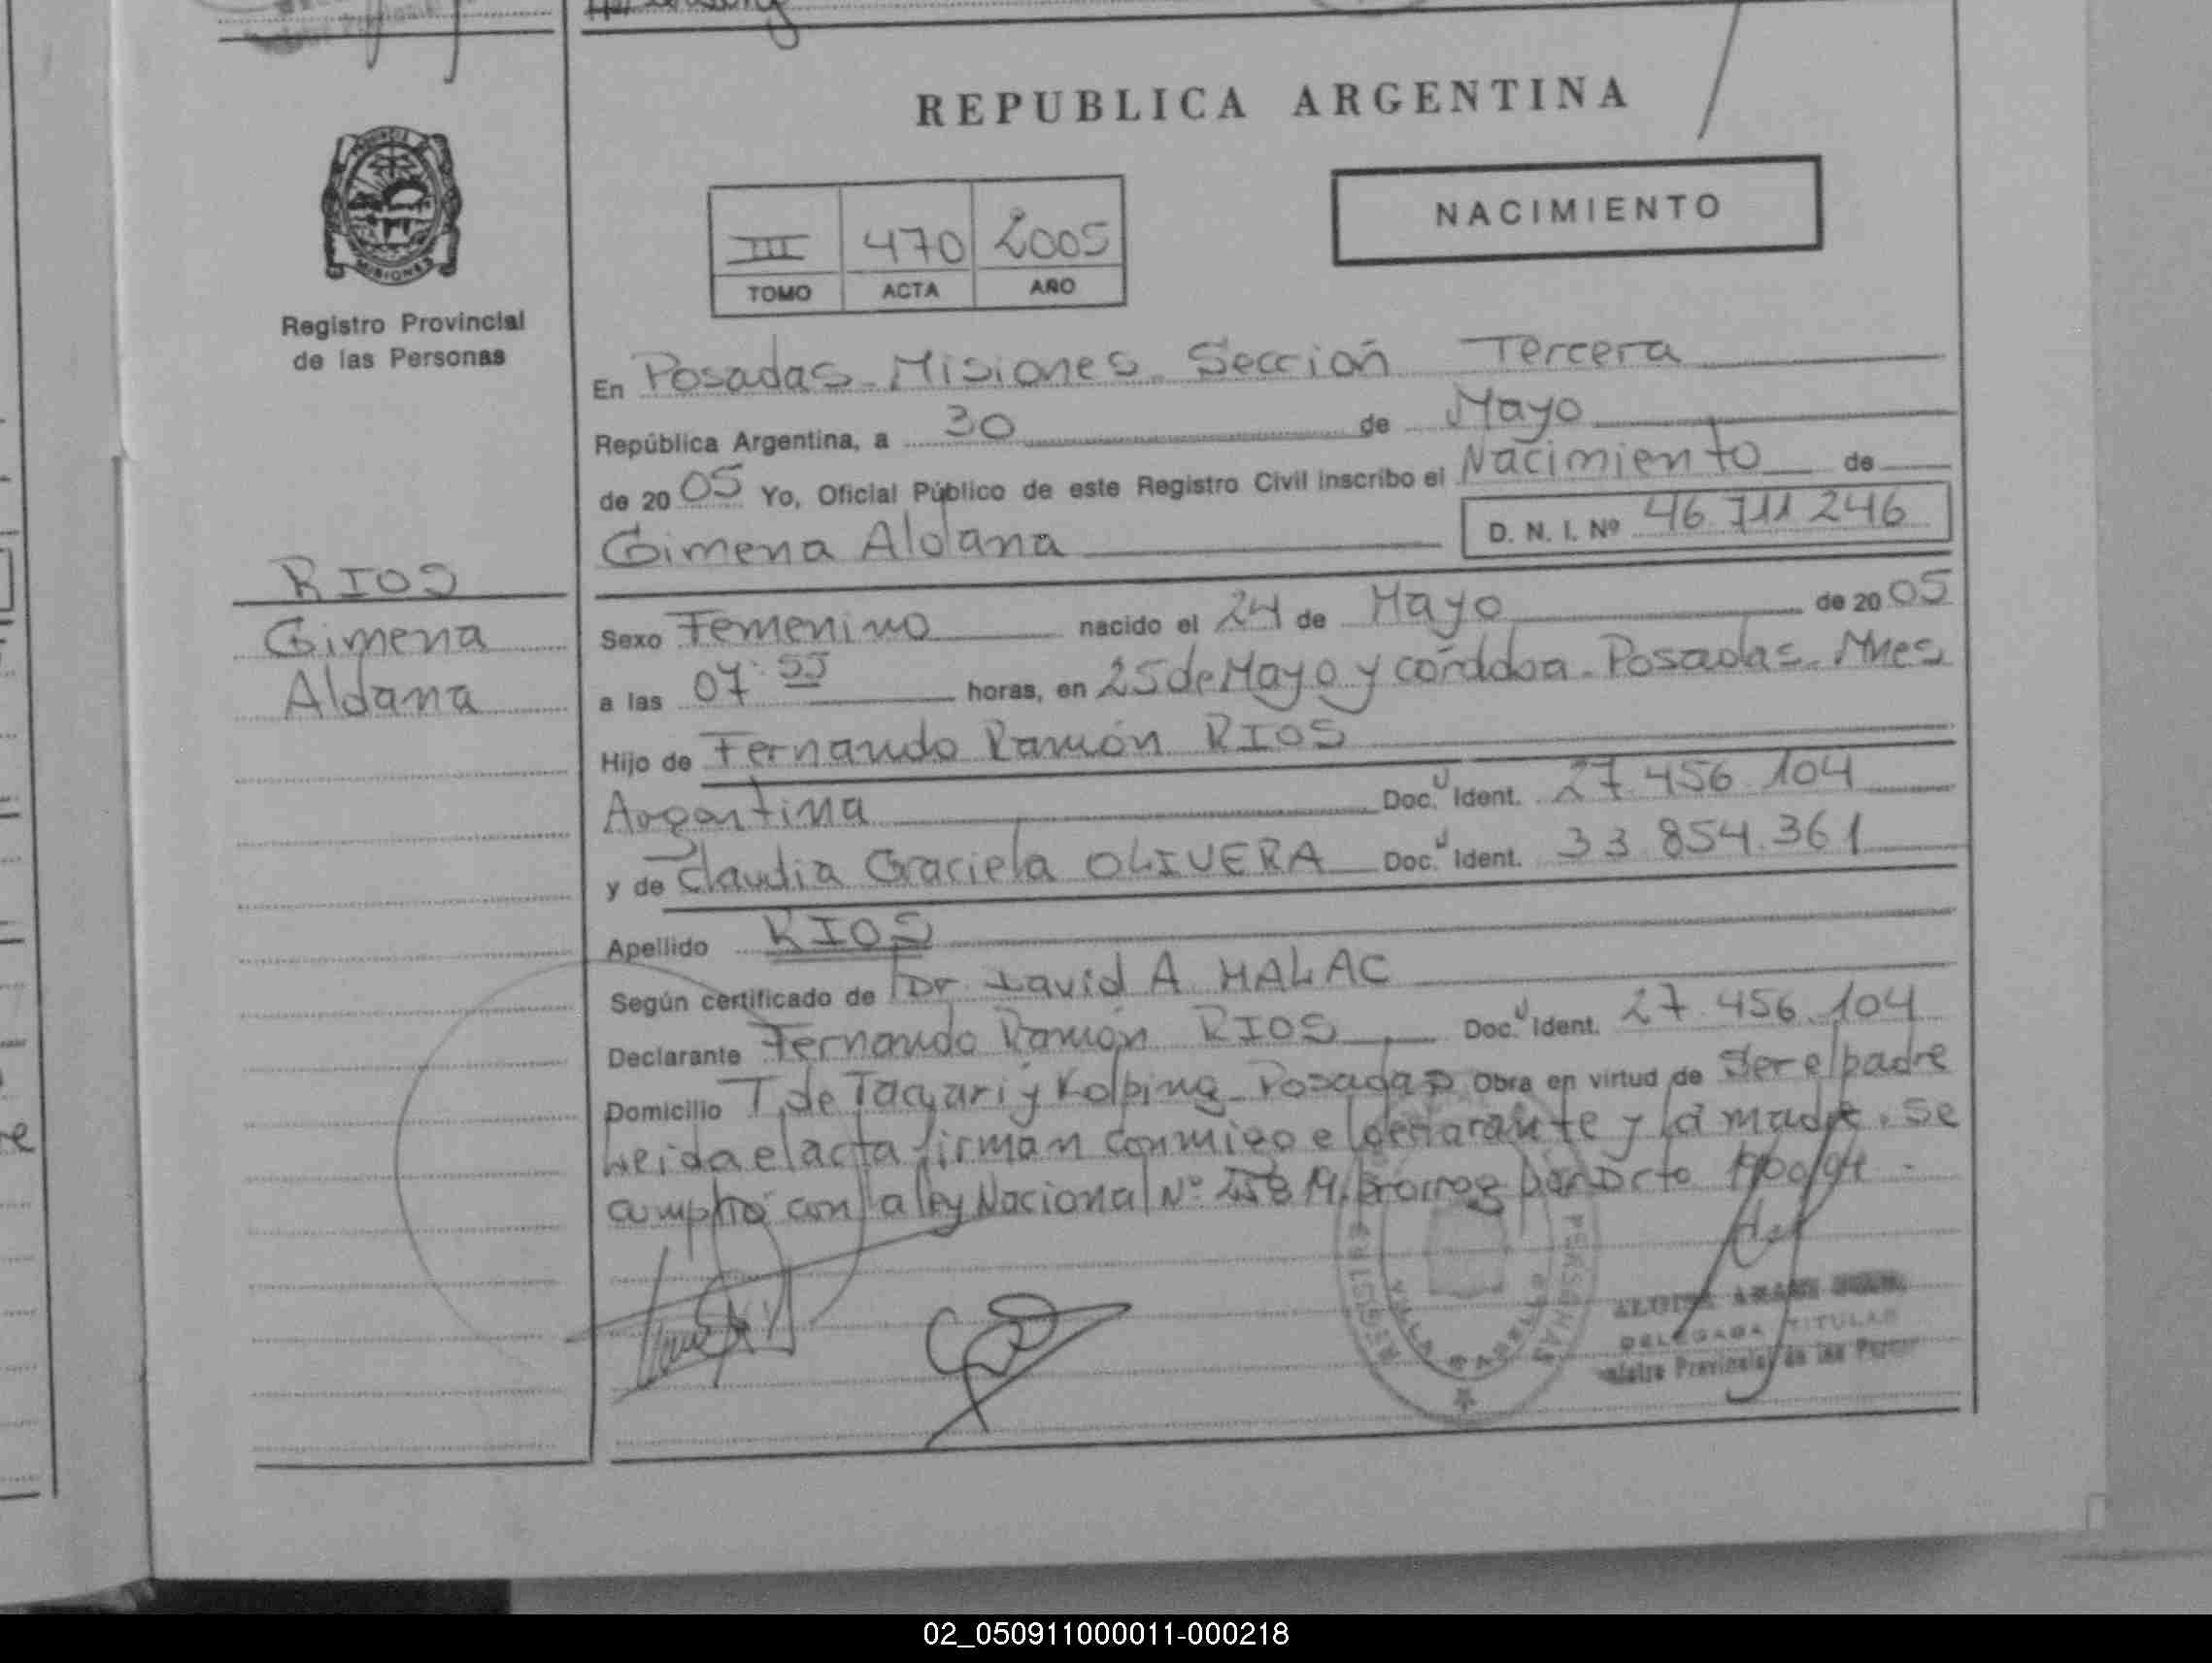 REPUBLICA ARGENTINA
NACIMIENTO
III 470 2005
TOMO ACTA AÑO
PROVINCIA DE MISIONES
Registro Provincial
de las Personas
RIOS
Gimena
Aldana
En Posadas - Misiones - Sección Tercera
República Argentina, a 30 de Mayo
de 2005 Yo, Oficial Público de este Registro Civil inscribo el Nacimiento de
Gimena Aldana D. N. I. Nº 46.711.246
Sexo Femenino nacido el 24 de Mayo de 2005
a las 07:55 horas, en 25 de Mayo y córdoba - Posadas - Mnes
Hijo de Fernando Ramón RIOS
Argentina Doc. Ident. 27.456.104
y de Claudia Graciela OLIVERA Doc. Ident. 33.854.361
Apellido RIOS
Según certificado de Dr. David A. HALAC
Declarante Fernando Ramón RIOS Doc. Ident. 27.456.104
Domicilio T. de Tacuari y Kolping - Posadas Obra en virtud de Ser el padre
Leida el acta firman conmigo el declarante y la madre. Se
cumplió con la ley Nacional Nº
DELEGADA TITULAR
Provincial de las
02_050911000011-000218